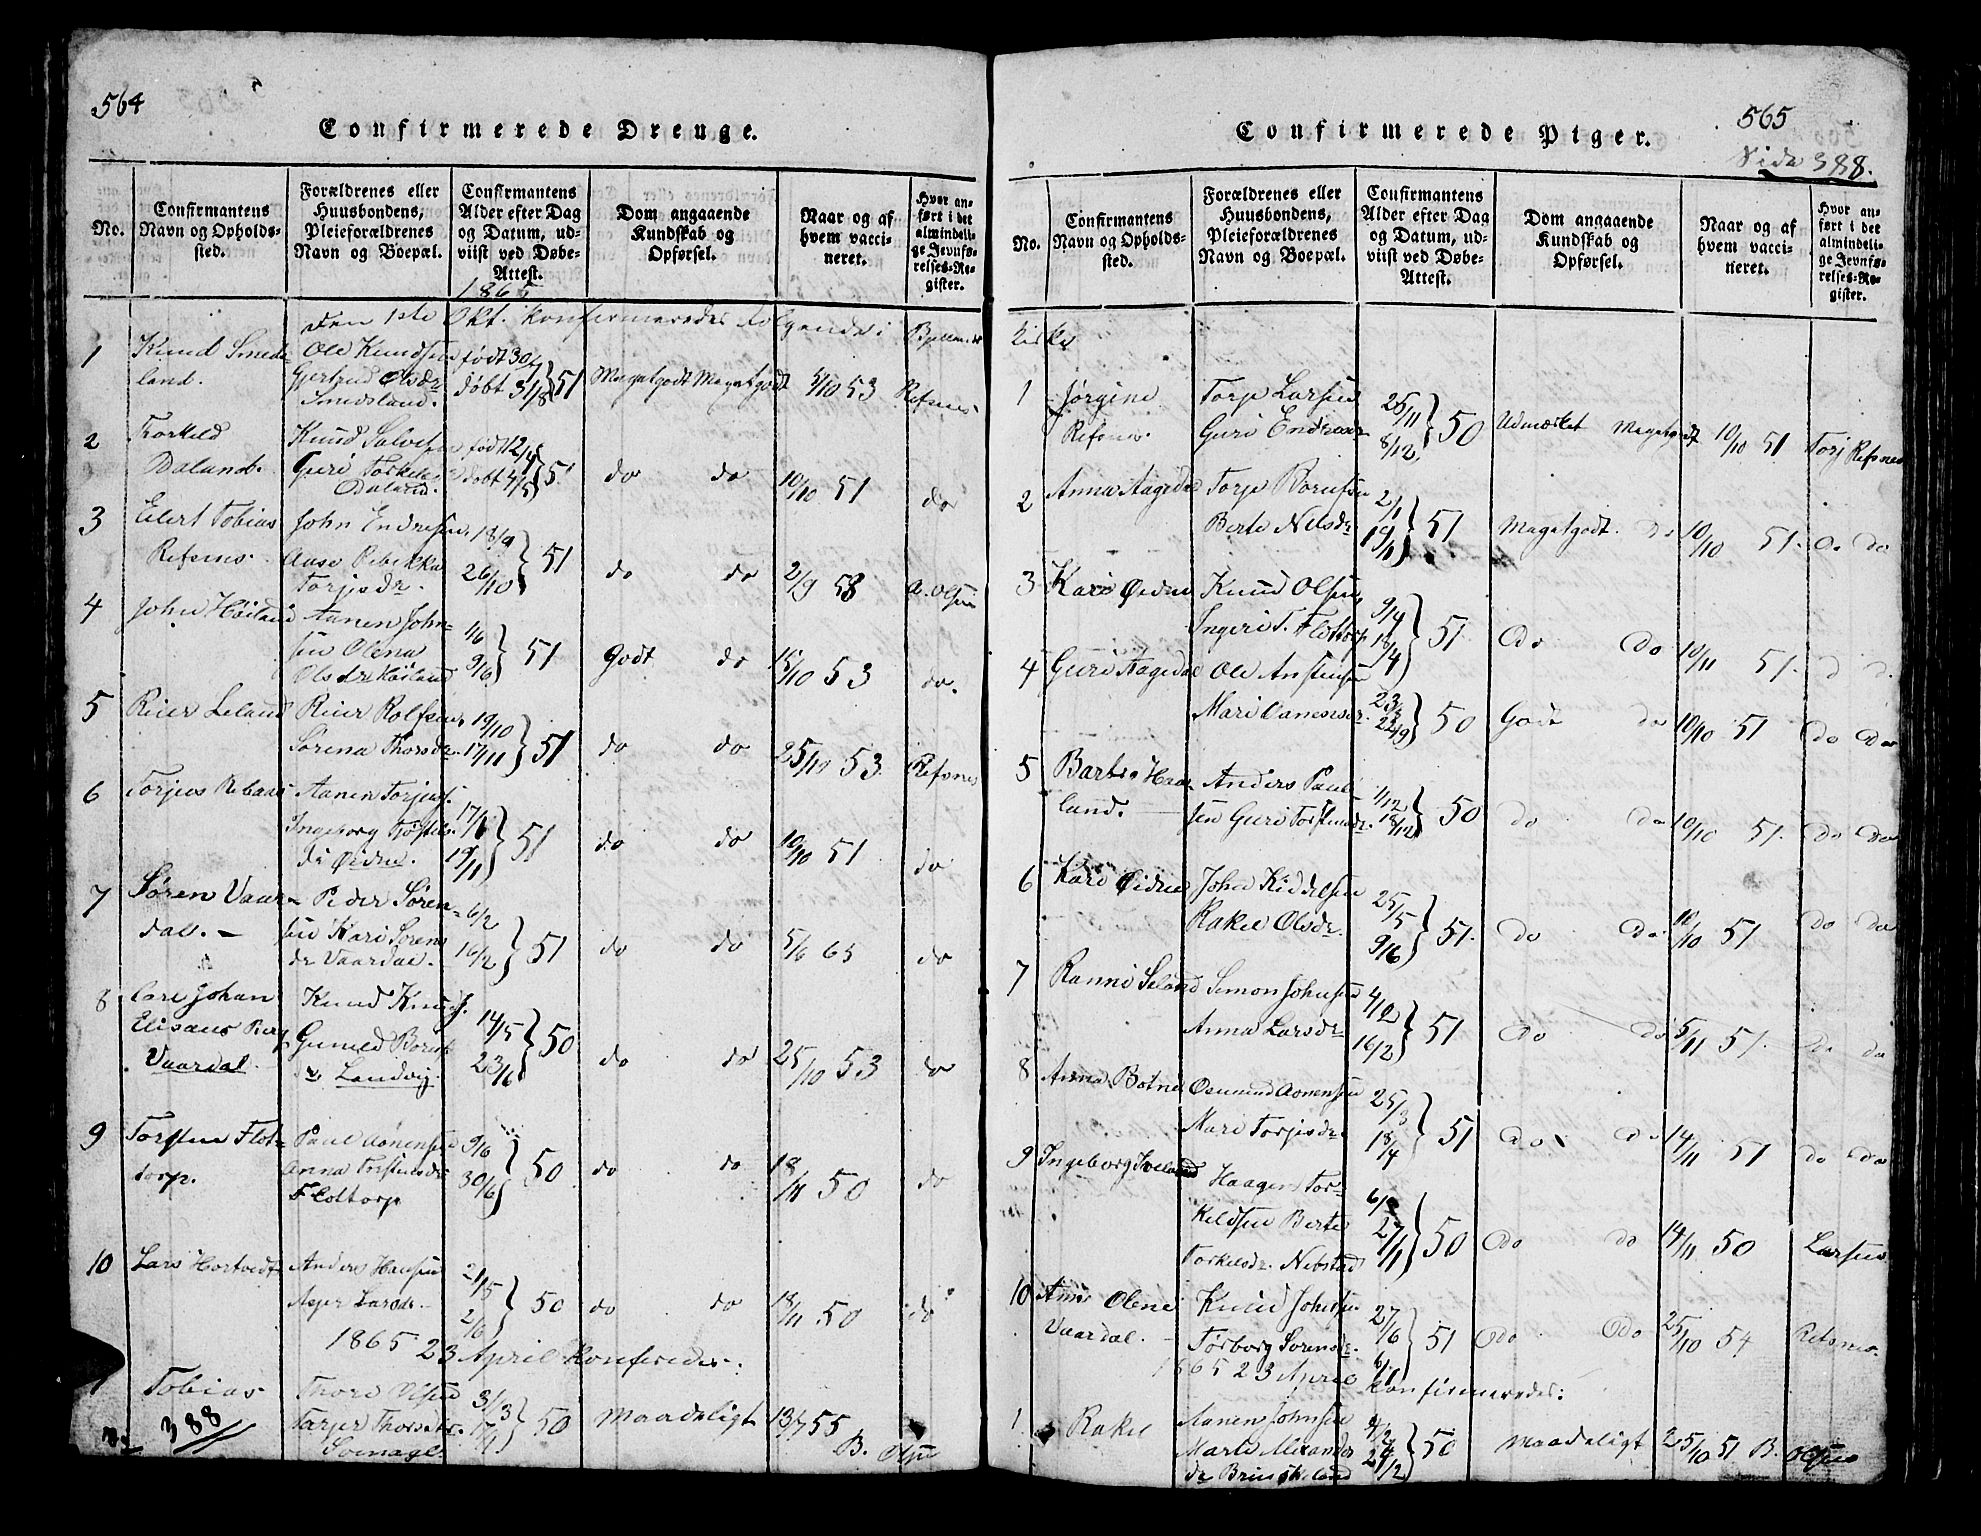 564
Confirmerede Drenge.
No.
Confirmantens Navn og Opholds-sted.
Forældrenes eller Huusbondens, Pleieforældrenes Navn og Boepæl.
Confirmantens Alder efter Dag og Datum, ud-viist ved Døbe-Attest.
Dom angaaende Kundskab og Opførsel.
Naar og af hvem vacci-neret.
Hvor an-ført i det almindeli-ge Jevnfø-relses-Re-gister.
1865
Den 1ste Okt. konfirmeredes følgende i
1 Knud Smeds- Ole Knudsen født 30/7
land. Gjertrud Olsdr døbt 31/8 } 51 Megetgodt Megetgodt 5/10 53 Refsnes
Smedsland.
2 Torkeld Knud Salvesen født 12/4
Daland. Guri Torkelsdr døbt 4/5 } 51 do do 10/10 51 do
Daland.
3 Eilert Tobias John Endresen 18/9
Refsnes. Aase Rebekka 26/10 } 51 do do 2/9 53 A. Olsen
Torjesdr.
4 John Høiland Aanen John- 1/6
sen Olena 9/6 } 51 Godt do 15/10 53 do.
Olsdr Høiland
5 Reier Leland Reier Rolfsen 19/10
Sørena Thorsdr. 17/11 } 51 do do 25/10 53 Refsnes
6 Torjus Aanen Torjus.
Ingeborg 19/11 } 51 do do 10/10 51 do
dr Øidne.
7 Søren Vaar- Peder Søren- 6/2
dal. – sen Kari Sørens 16/2 } 51 do do 5/6 65 do
dr Vaardal.
8 Carl Johan Knud Knuds. 14/5
Elisæus Berg Gunild 23/6 } 50 do do 25/10 53 do
Vaardal. dr Landvig.
9 Torsten Flot- Paul Aanensen 9/6
torp. Anna Torstensdr 30/6 } 50 do do 18/11 50 do
Flottorp
10 Lars Hortvedt Anders Hansen 21/5
Asjer Larsdr. 2/6 } 50 do do 18/11 50 do
1865 23 April konfiredes.
1 Tobias Thore Olsen 31/3
Tarjer Thorsdtr. 17/4 } 50 Maadeligt 13/7 55
388 B. Olsen
565
Confirmerede Piger.
Side 388.
No.
Confirmantens Navn og Opholds-sted.
Forældrenes eller Huusbondens, Pleieforældrenes Navn og Boepæl.
Confirmantens Alder efter Dag og Datum, ud-viist ved Døbe-Attest.
Dom angaaende Kundskab og Opførsel.
Naar og af hvem vacci-neret.
Hvor an-ført i det almindeli-ge Jevnfø-relses-Re-gister.
Kirke
1 Jørgine Torje Larsen 26/11
Refsnes. Guri Endresdr 8/12 } 50 Udmærket Megetgodt 10/10 51 Torj Refsnes
2 Anna Aagedal Torje 2/1
Berte Nilsdr 19/1 } 51 Megetgodt. do 10/10 51. do do
3 Kari Øidne Knud Olsen 9/4
Ingeri T. Flottorp 18/4 } 51. do do 10/11 51.
4 Guri Aagedal Ole Anstensen
Mari Aanensdr. 22/9 } 50 Godt do 10/10 51 do do
5 Barbro Haa- Anders Paul- 1/12
land. sen Guri Torstensdr. 18/12 } 50 do do 10/10 51. do do
6 Kari Øidne John Kiddelsen 25/5
Rakel Olsdr. 9/6 } 51. do do. 10/10 51 do do
7 Ranni Seland Simon Johnsen 4/2
Anna Larsdr 16/2 } 51 do do 5/11 51. do do
8 Anna Botne Osmund Aanensen 25/3
Mari Torjesdr 18/4 } 51 do do 14/11 51 do do
9 Ingeborg Iveland Haagen Tor-
keldsen Berte 27/11 } 50 do do 14/11 50 Larsen.
Torkelsdr. Nebstad
10 Anne Olene Knud Johnsen 27/6
Vaardal. – Torborg Sørensdr. 6/7 } 51 do do 25/10 54 Refsnes.
1865 23 April
konfirmeredes:
1 Rakel Aanen Johnsen
Marte Alexander 24/2 } 50 Maadeligt 25/10 51 B. Olsen
dr